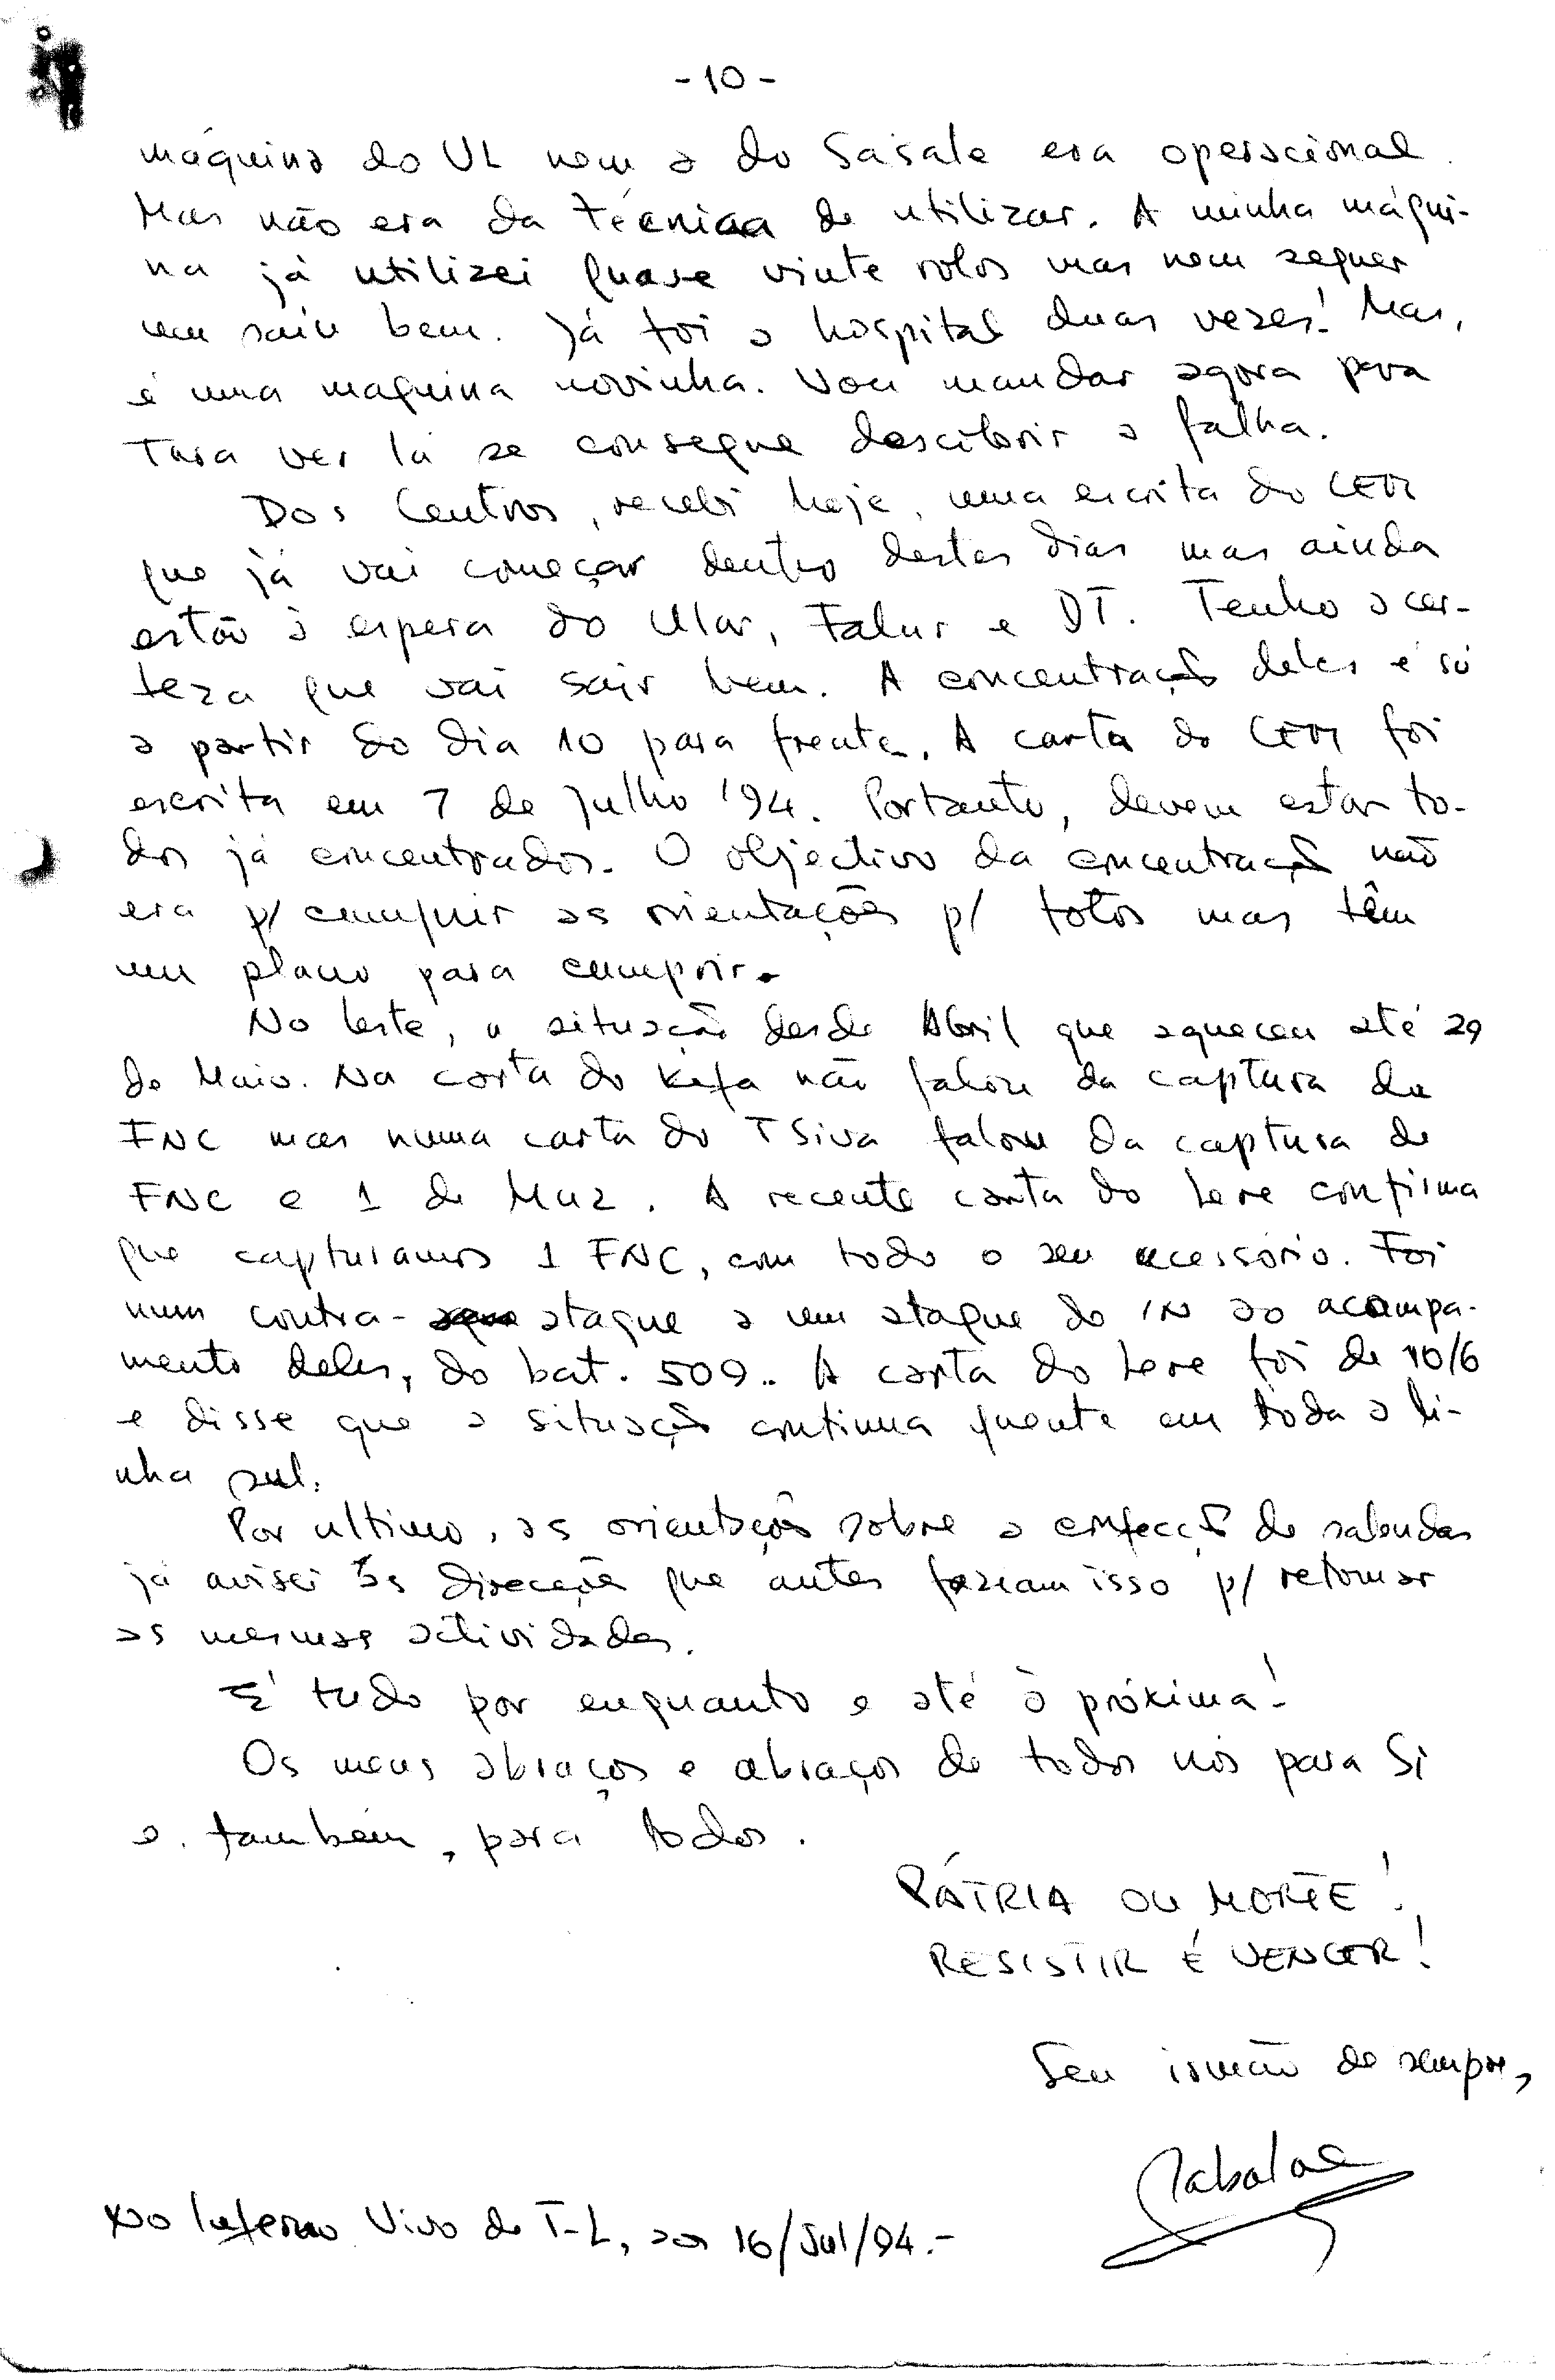 -10-
máquina do UL nem a do Sasale era operacional.
Mas não era da técnica de utilizar. A minha máqui-
na já utilizei quase vinte rolos mas nem sequer
um saiu bem. Já foi a hospital duas vezes! Mas,
é uma maquina novinha. Vou mandar agora para
Tara ver lá se consegue descobrir a falha.
Dos Centros, recebi hoje, uma escrita do
que já vai começar dentro destes dias mas ainda
estão à espera do Ular, Falur e DT. Tenho a cer-
teza que vai sair bem. A concentração deles é só
a partir do dia 10 para frente. A carta do foi
escrita em 7 de Julho '94. Portanto, devem estar to-
dos já concentrados. O objectivo da concentração não
era p/ cumprir as orientações p/ fotos mas têm
um plano para cumprir.
No leste, a situação desde Abril que aqueceu até 29
de Maio. Na carta do não falou da captura da
FNC mas numa carta do falou da captura de
FNC e 1 de . A recente carta do Lere confirma
que capturamos 1 FNC, com todo o seu acessório. Foi
num contra- ataque a um ataque do IN ao acampa-
mento deles, do bat. 509.. A carta do Lere foi de 10/6
e disse que a situação continua quente em toda a li-
nha sul.
Por ultimo, as orientações sobre a confecção de salendas
já avisei às direcções que antes faziam isso p/ retomar
as mesmas actividades.
É tudo por enquanto e até à próxima!
Os meus abraços e abraços de todos nós para Si
e. também, para todos.
PÁTRIA OU MORTE!
RESISTIR É VENCER!
Seu irmão de sempre,
No Inferno Vivo de T-L, aos 16/Jul/94.-